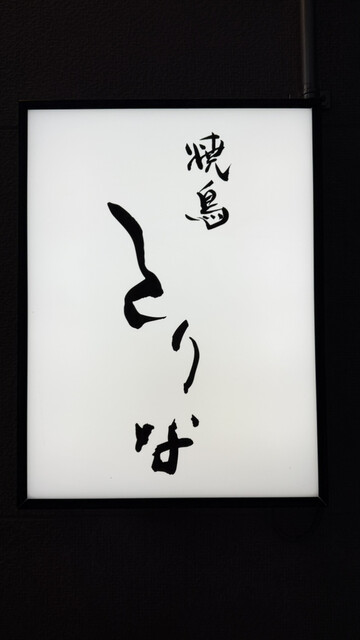 焼鳥
とりな